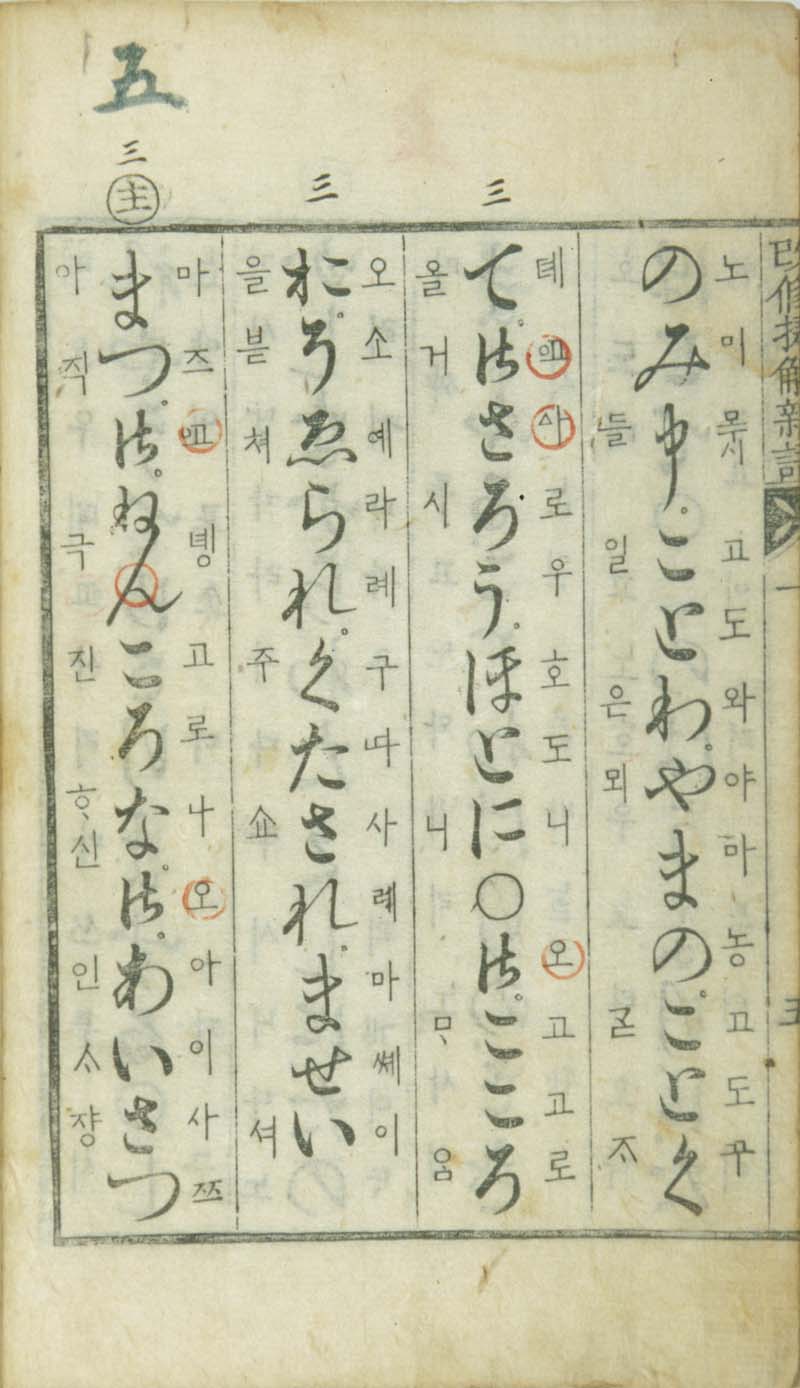 改修捷解新語 一 五
五
三 主
三
三
노미 고도와야마농고도구
のみ申ことわやまのごとく
들일은뫼ᄀᆞᆮᄌᆞ
로우호도니오고고로
て御さろうほとに○御こころ
올거시니ᄆᆞ음
오소예라례구다사례마쎼이
おそゑられくたされませい
을븓쳐주쇼셔
마즈 고로나오아이사쯔
まつ御ねんころな御あいさつ
아직극진ᄒᆞ신인ᄉᆞ쟝